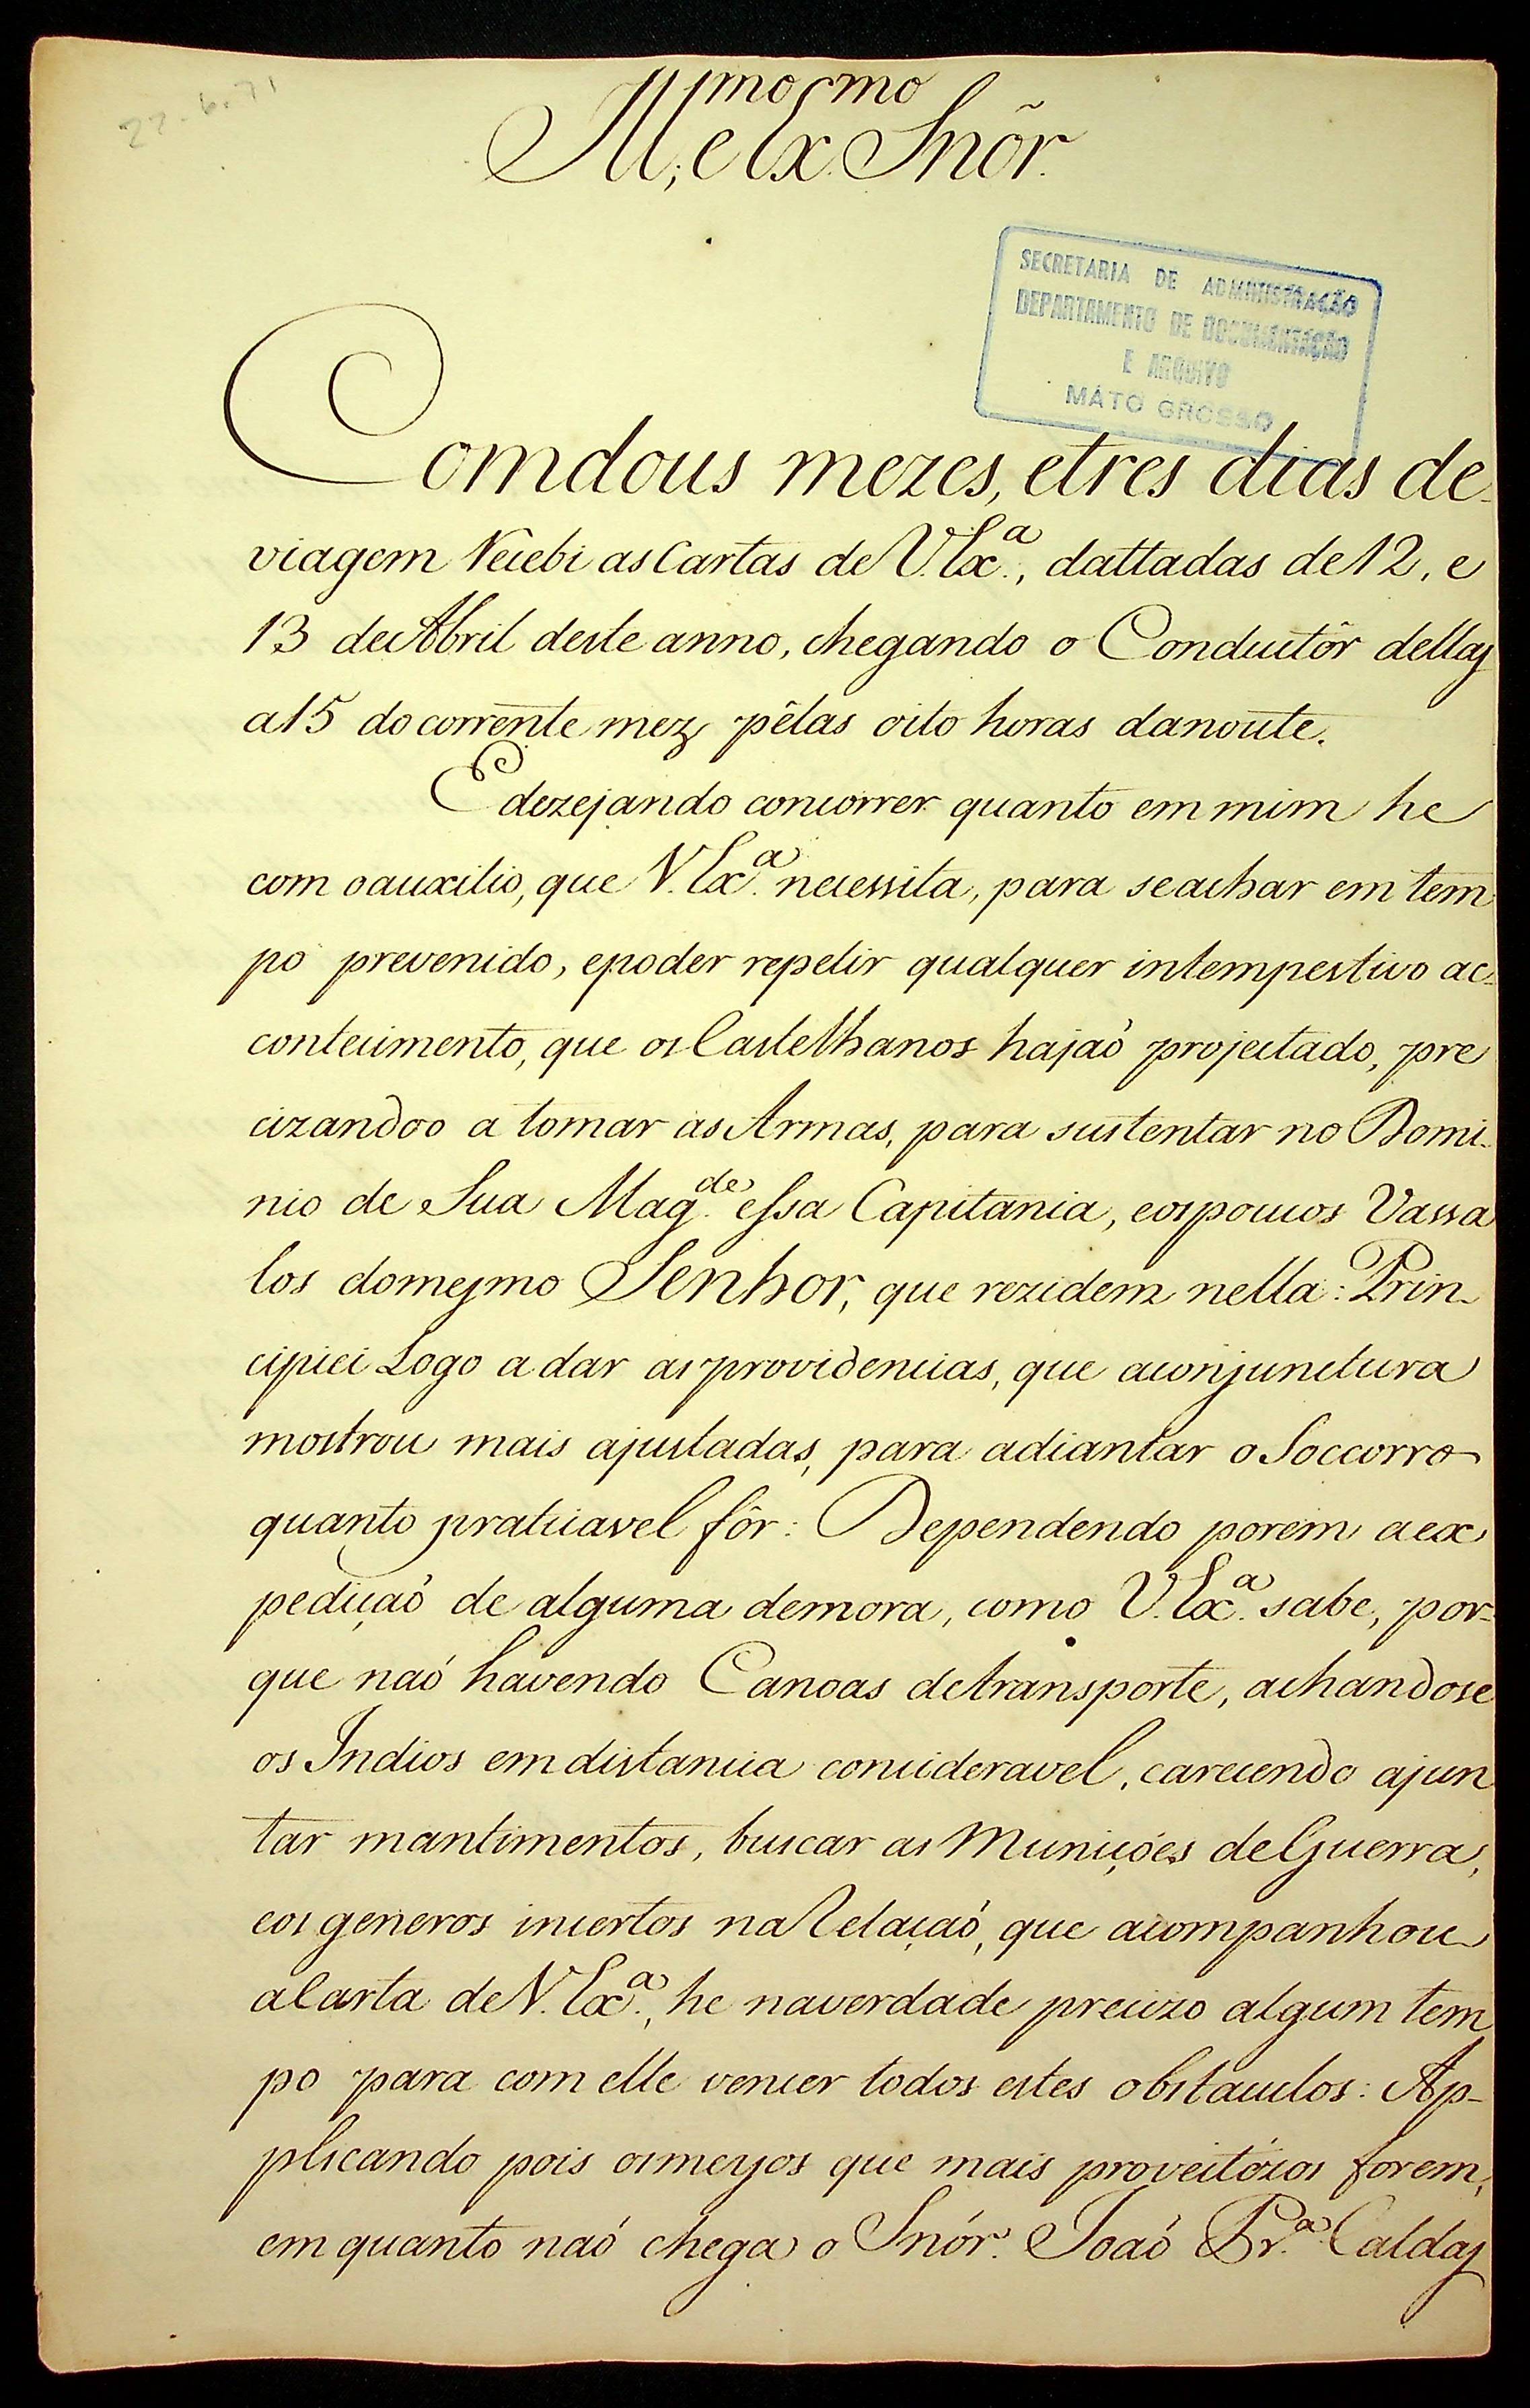 22.6.71
Ill.mo, e Ex.mo Snõr.
SECRETARIA DE ADMINISTRAÇÃO
DEPARTAMENTO DE DOCUMENTAÇÃO
E ARQUIVO
MATO GROSSO
Comdous mezes, etres dias de
viagem Recebi asCartas de V. Ex.ª, dattadas de 12, e
13 de Abril deste anno, chegando o Conductôr dellas
a 15 do corrente mez, pêlas oito horas danoute.
E dezejando concorrer quanto em mim he
com oauxilio, que V. Ex.ª necessita, para seachar em tem
po prevenido, epoder repelir qualquer intempestivo ac-
contecimento, que os Castelhanos hajaó projectado, pre
cizandoo a tomar as Armas, para sustentar no Domi-
nio de Sua Mag.de essa Capitania, eospoucos Vassa
los domesmo Senhor, que rezidem nella: Prin-
cipiei Logo a dar as providencias, que aconjunctura
mostrou mais ajustadas, para adiantar o Soccorro
quanto praticavel fôr: Dependendo porem aex
pediçaó de alguma demora, como V. Ex.ª sabe, por-
que naó havendo Canoas detransporte, achandose
os Indios em distancia concideravel, carecendo ajun
tar mantimentos, buscar as Muniçóes deGuerra,
eos generos incertos na Relaçaó, que acompanhou
aCarta de V. Ex.ª, he naverdade precizo algum tem
po para com elle vencer todos estes obstaculos: Ap-
plicando pois osmeyos que mais proveitózos forem,
em quanto naó chega o Snór. Joaó Pr.ª Caldas